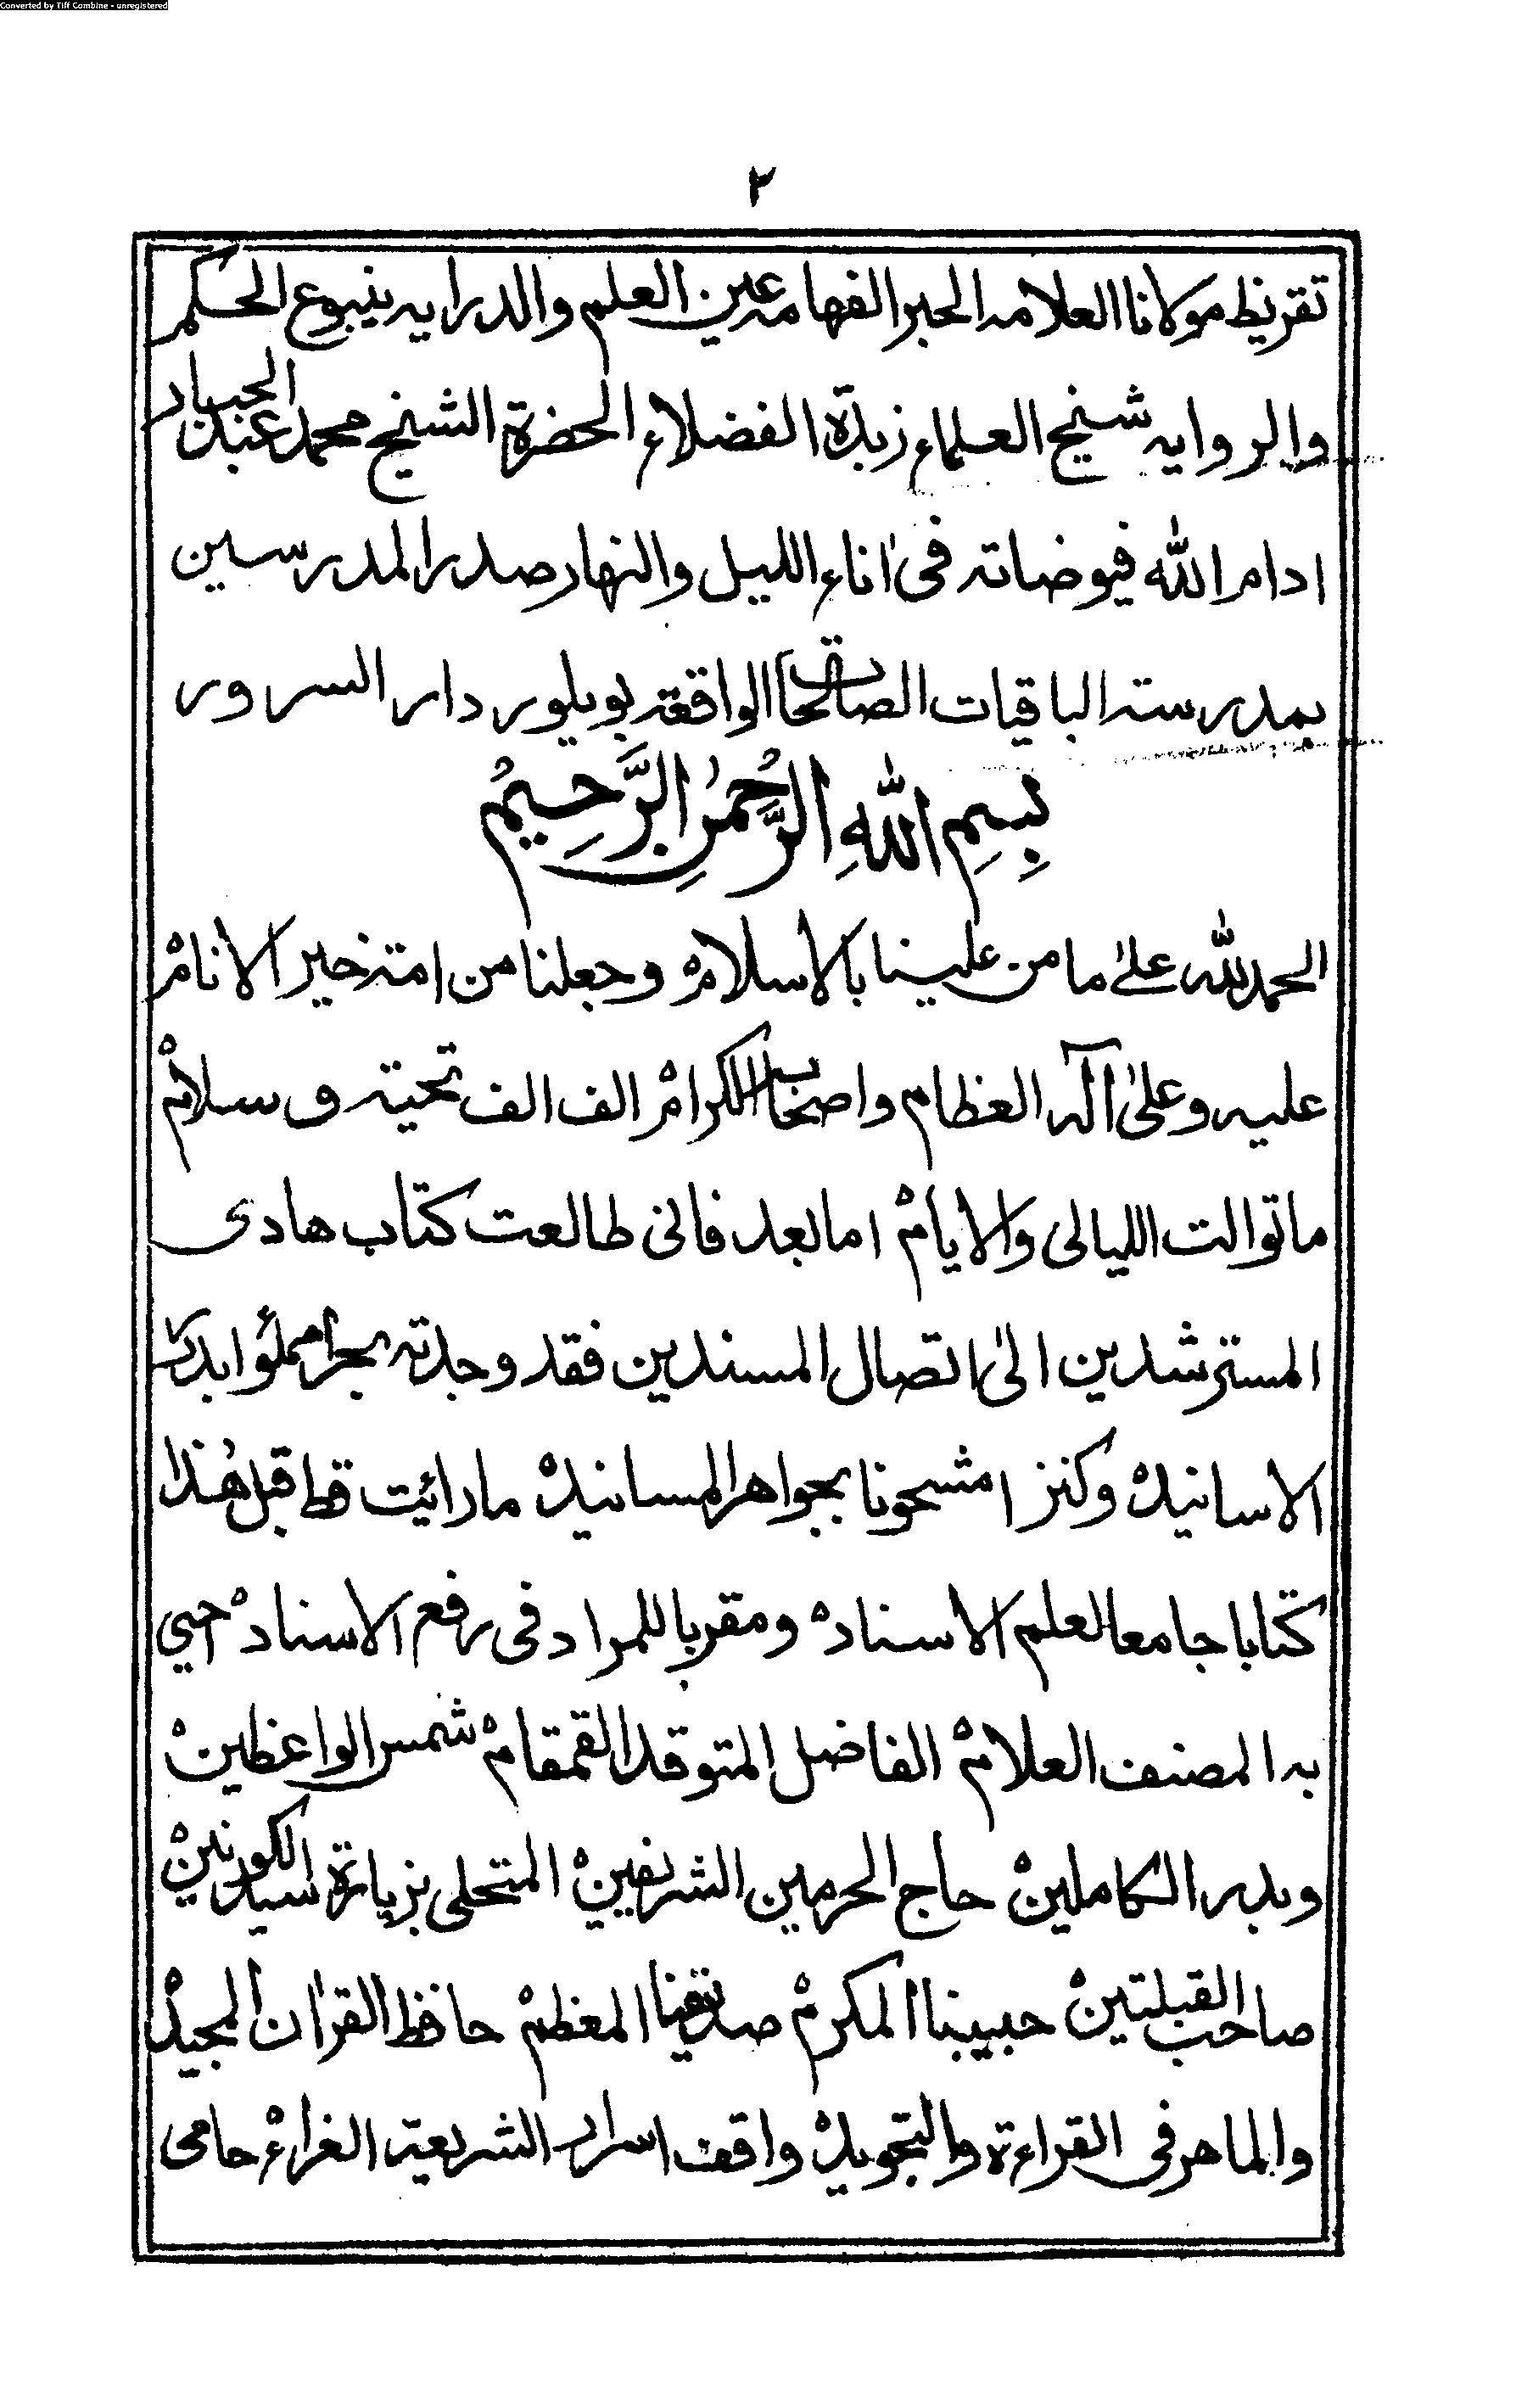 Converted by Tiff Combine - unregistered
٢
تقريظ مولانا العلامه الحبر الفهامه عين العلم والدرايه ينبوع الحكم
والروايه شيخ العلماء زبدة الفضلاء الحضرة الشيخ محمد عبد الجبار
ادام الله فيوضاته فى اناء الليل والنهار صدر المدرسين
بمدرسته الباقيات الصالحات الواقعة بويلور دار السرور
بِسمِ اللهِ الرَّحمٰنِ الرَّحِيمُ
الحمد لله علىٰ ما من علينا بالاسلامْ وجعلنا من امته خير الانامْ
عليه وعلىٰ آله العظام واصحابه الكرامْ الف الف تحيته وسلامْ
ماتوالت الليالى والايامْ اما بعد فانى طالعت كتاب هادى
المسترشدين الىٰ اتصال المسندين فقد وجدته بحرا مملؤا بدرر
الاسانيدْ وكنزا مشحونا بجواهر المسانيدْ مارائيت قط قبل هٰذا
كتابا جامعا لعلم الاسنادْ ومقربا للمراد فى رفع الاسنادْ احيي
به المصنف العلامْ الفاضل المتوقد القمقامْ شمس الواعظينْ
وبدر الكاملينْ حاج الحرمين الشريفينْ المتحلى بزيارة سيد الكونينْ
صاحب القبلتينْ حبيبنا المكرمْ صديقنا المعظمْ حافظ القراٰن المجيدْ
والماهر فى القراءة والتجويدْ واقف اسرار الشريعة الغراءْ حامى